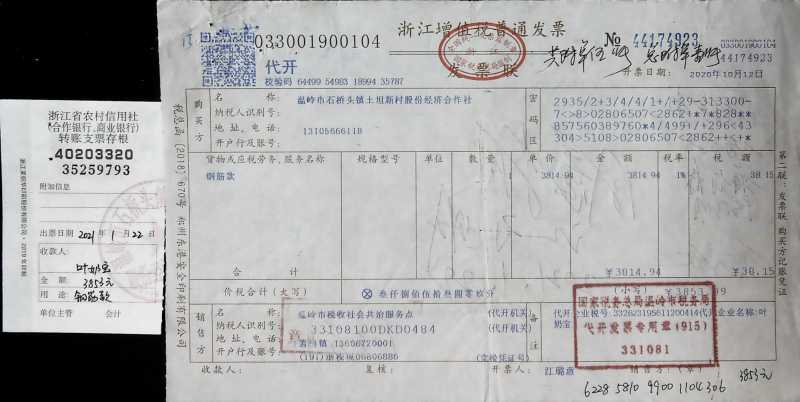 浙江省农村信用社
(合作银行、商业银行)
转账支票存根
40203320
35259793
附加信息
出票日期 2021 年 1 月 22 日
收款人:
叶奶宝
金额: 3853元
用途: 钢筋款
单位主管 会计
浙江增值税普通发票
033001900104
代开
校验码 64499 54983 18994 35787
发票联
№ 44174923
44174923
开票日期: 2020年10月12日
税总函〔2018〕670号
购买方
名称: 温岭市石桥头镇土坦新村股份经济合作社
纳税人识别号:
地址、电话: 13105666118
开户行及账号:
密码区
2935/2+3/4/1+/+29-313300-
7<>8>02806507<2862++*7*828**
857560389760*4/499+/+296<43
304>5108>02806507<2862++<+*
货物或应税劳务、服务名称 规格型号 单位 数量 单价 金额 税率 税额
钢筋款 1 3814.94 3814.94 1%
合计 ¥3814.94 ¥38.15
价税合计(大写) 叁仟捌佰伍拾叁圆零玖分 (小写) ¥3853.09
销售方
名称: 温岭市税收社会共治服务点 (代开机关)
纳税人识别号: 33108100DKD0484 (代开机关)
开户行及账号: (完税凭证号)
备注
代开企业名称: 叶奶宝
国家税务总局温岭市税务局
代开发票专用章(915)
331081
收款人: 复核: 开票人: 江璐燕
3853元
6228 5810 9900 1104 306
第二联:发票联 购买方记账凭证